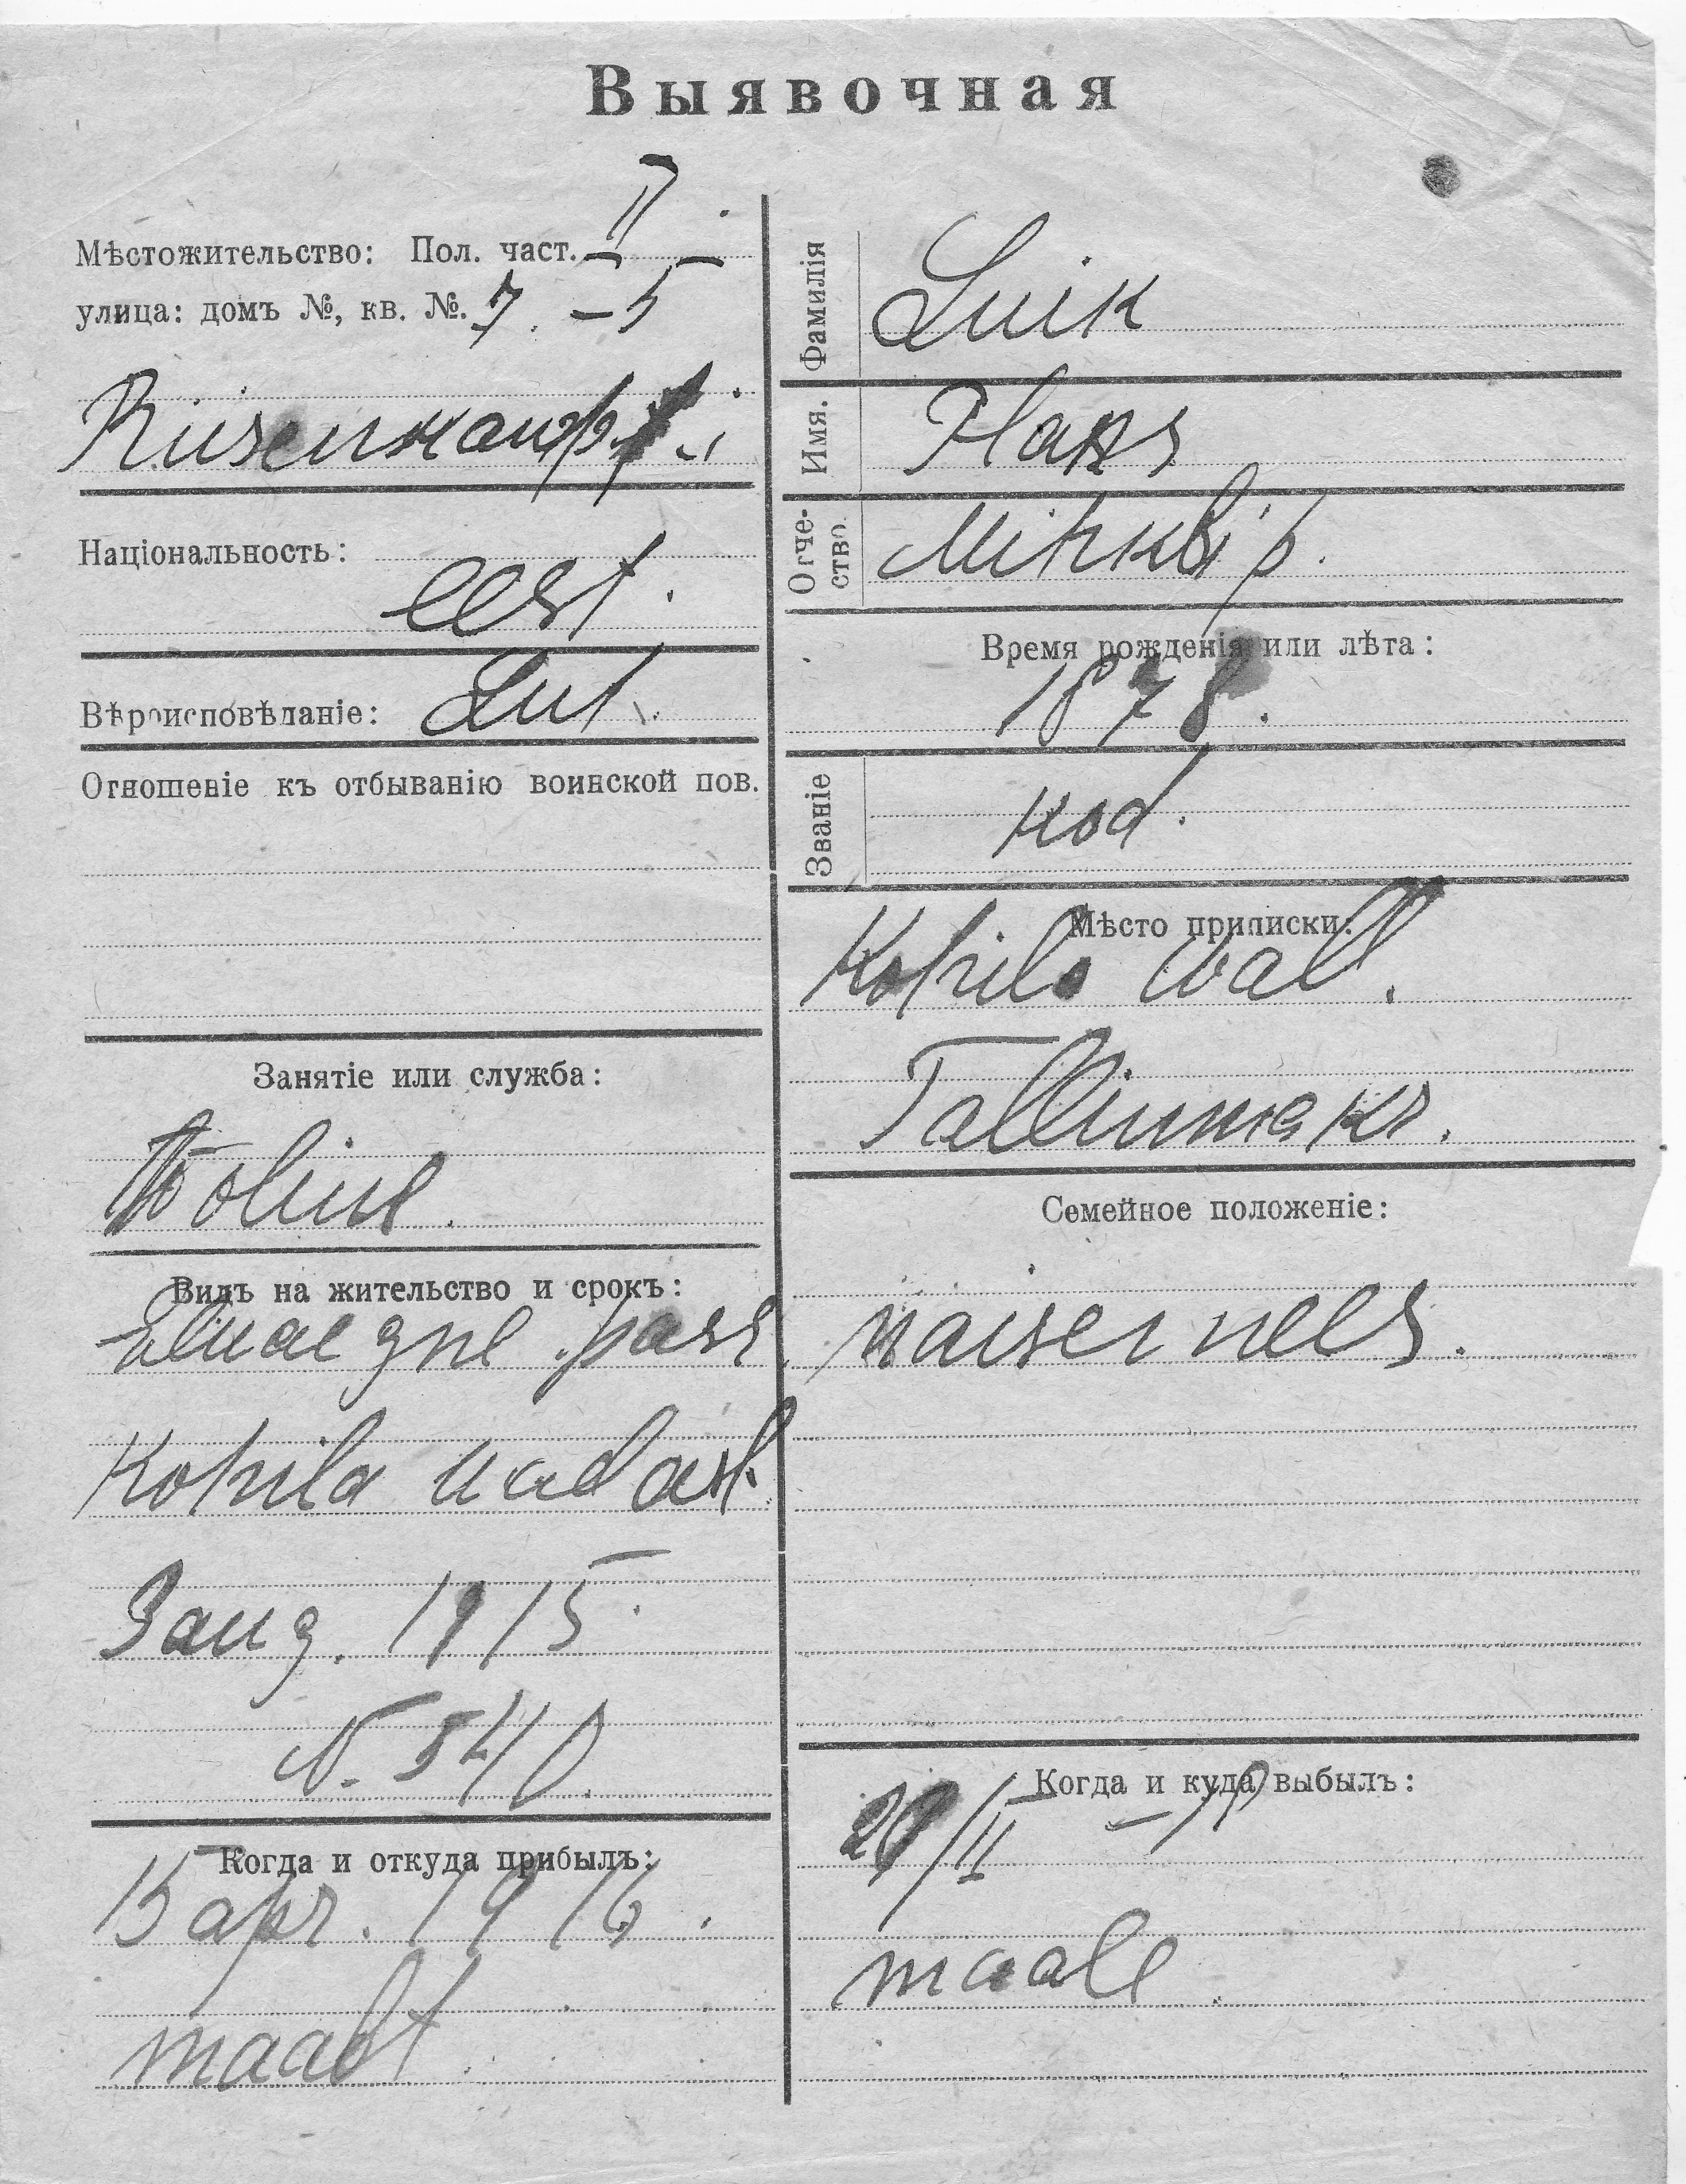 Выявочная
Мѣстожительство: Пол. част. II
улица: домъ №, кв. №. 7. – 5
Національность:
eest.
Вѣроисповѣданіе: Lut.
Отношеніе къ отбыванію воинской пов.
Занятіе или служба:
Tööline.
Видъ на жительство и срокъ:
pass
Kohila
1915
N. 540.
Когда и откуда прибылъ:
15 apr. 1916.
maalt
Фамилія
Luik
Имя.
Hans
Отче-
ство.
Mihkli p.
Время рожденія или лѣта:
1878.
Званіе
kod.
Мѣсто приписки:
Kohila wall.
Tallinna kr.
Семейное положеніе:
naisemees.
Когда и куда выбылъ:
/II – 19
maale